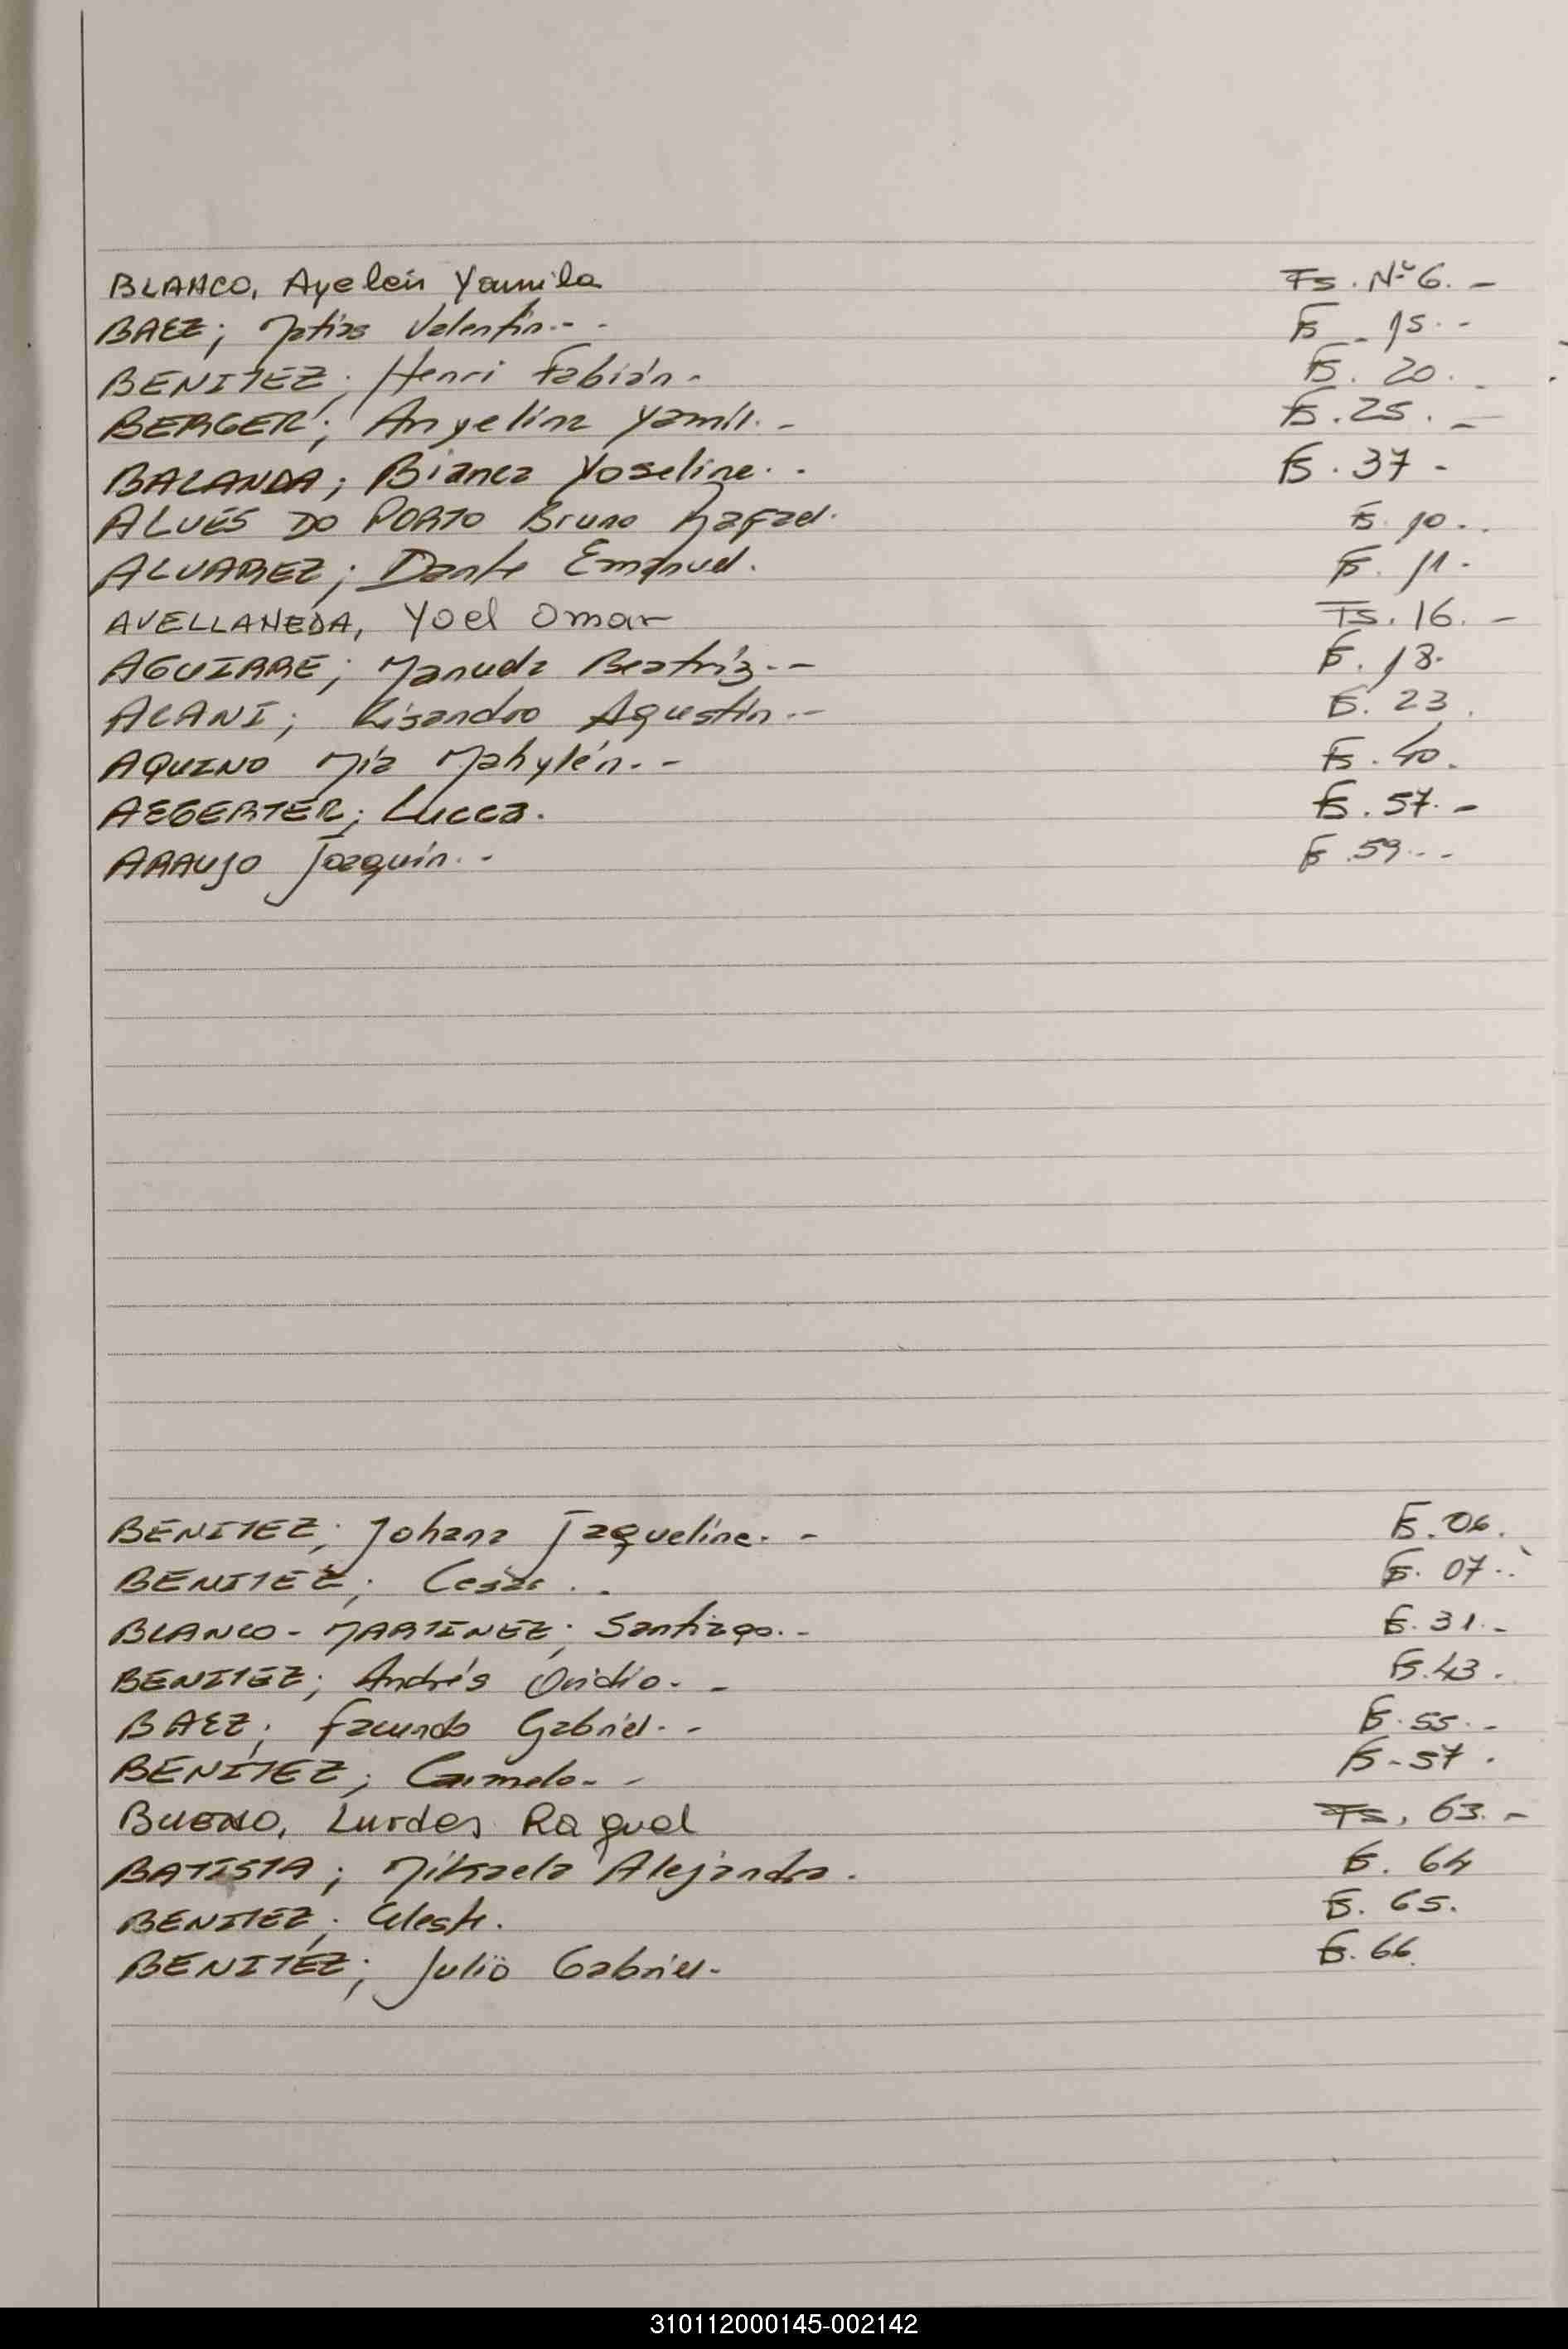 BLANCO, Ayelén Yamila Fs. Nº 6. -
BAEZ; Matias Valentín. - - Fs - 15. -
BENITEZ; Henri Fabián - Fs. 20. -
BERGER; Angelina Yamil. - Fs. 25. -
BALANDA; Bianca Yoseline. - Fs. 37 -
ALVES DO PORTO Bruno Rafael. Fs. 10. -
ALVAREZ; Dante Emanuel. Fs. 11. -
AVELLANEDA, Yoel Omar Fs. 16. -
AGUIRRE; Manuela Beatríz. - Fs. 18.
ALANI; Lisandro Agustín. - Fs. 23.
AQUINO Mía Mahylén. - Fs. 40.
AEGERTER; Lucca. Fs. 57. -
ARAUJO Joaquín. - Fs. 59. -
BENITEZ; Johana Jaqueline. - Fs. 06.
BENITEZ; Cesar. . Fs. 07. .
BLANCO - MARTINEZ; Santiago. - Fs. 31. -
BENITEZ; Andrés Ovidio. - Fs. 43.
BAEZ; Facundo Gabriel. - Fs. 55. -
BENÍTEZ; Carmelo. - Fs - 57.
BUENO, Lurdes Raquel Fs. 63. -
BATISTA; Mikaela Alejandra. Fs. 64
BENITEZ; Celeste. Fs. 65.
BENITEZ; Julio Gabriel - Fs. 66.
310112000145-002142